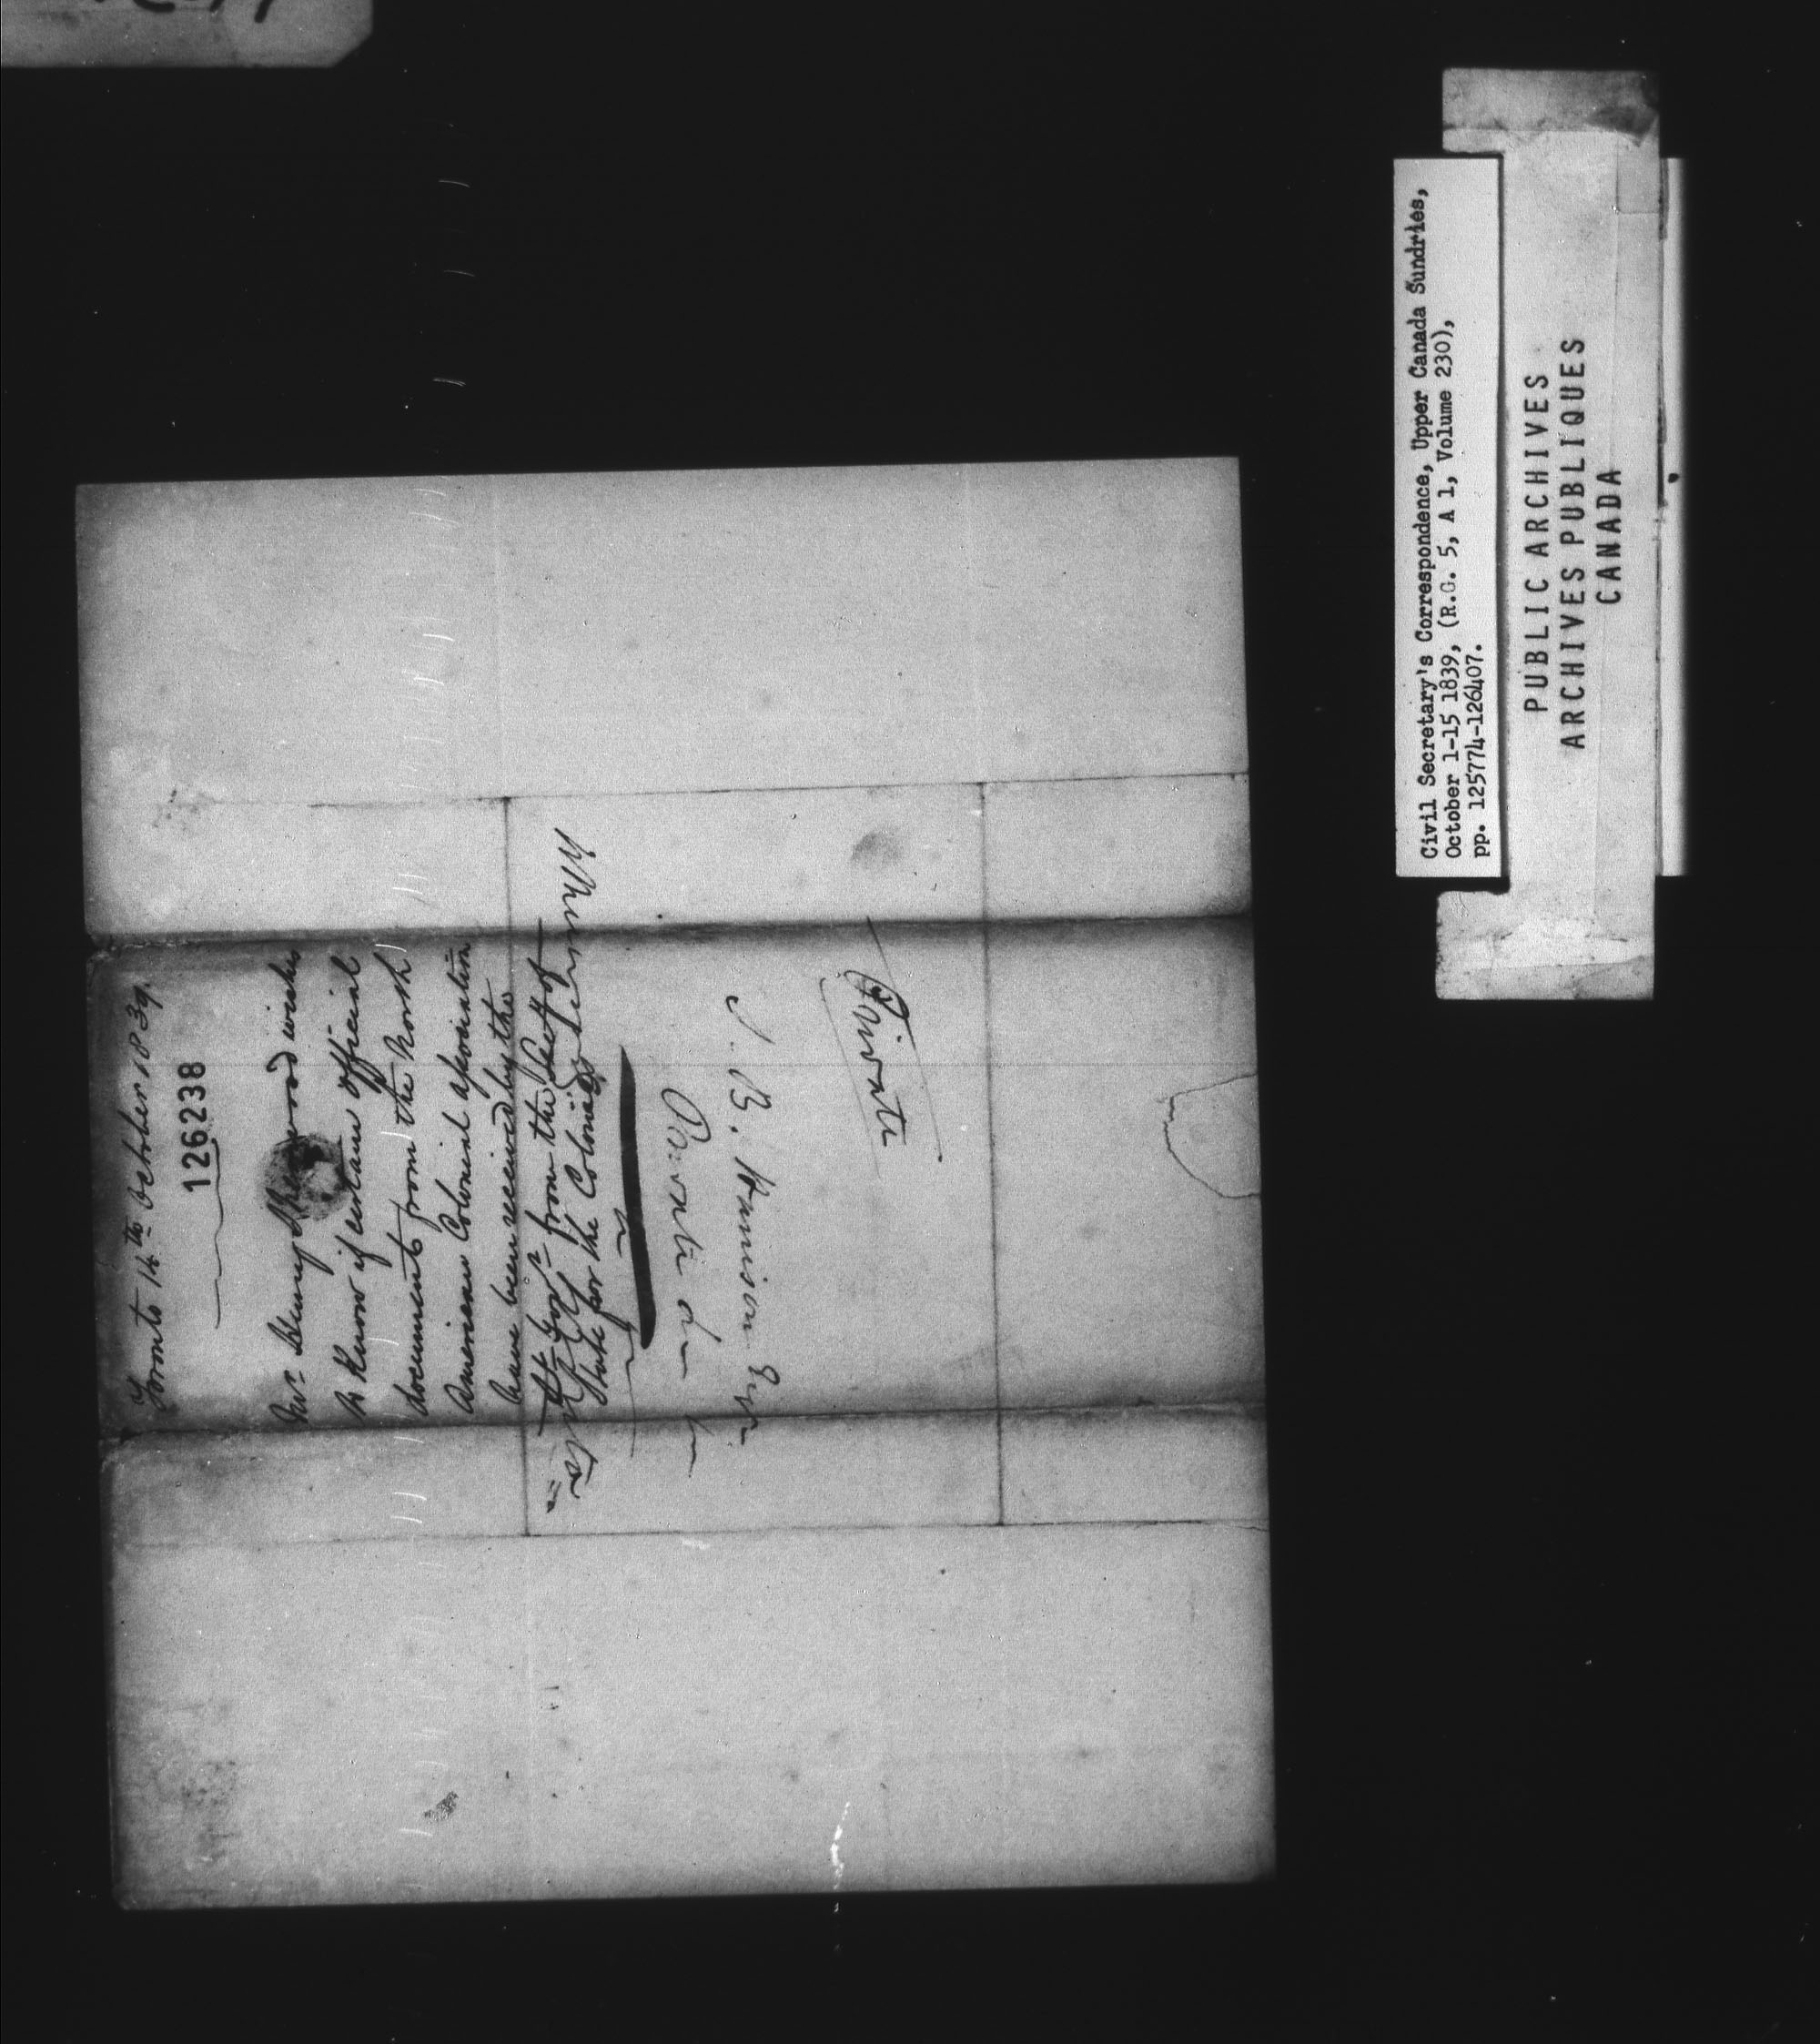 Toronto 14th October 1839.
126238
Mr Henry Sherwood wishes
to know if certain official
documents from the North
American Colonial association
have been received by the
Lt Govr from the Secy of
State for the Colonies
J. B. Harrison Esqr
Private
Civil Secretary's Correspondence, Upper Canada Sundries,
October 1-15 1839, (R.G. 5, A 1, Volume 230),
pp. 125774-126407.
PUBLIC ARCHIVES
ARCHIVES PUBLIQUES
CANADA